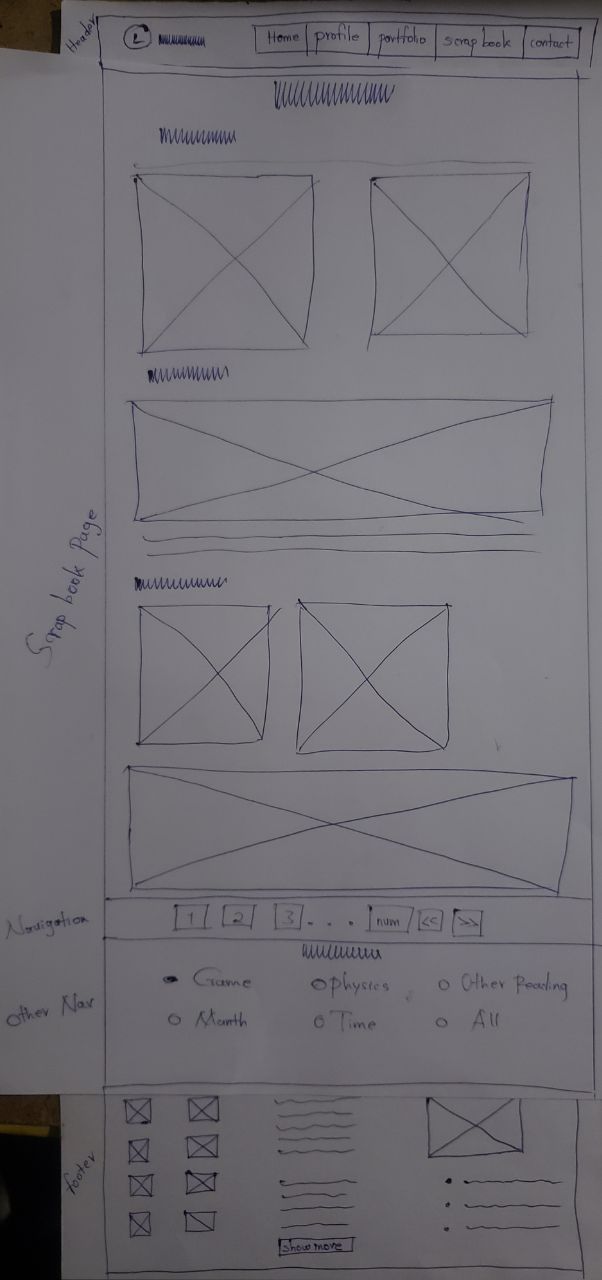 Header
L
Home profile portfolio scrap book contact
Scrap book Page
Navigation
1 2 3 . . . num << >>
Other Nav
Game physics Other Reading
Marth Time All
footer
show more